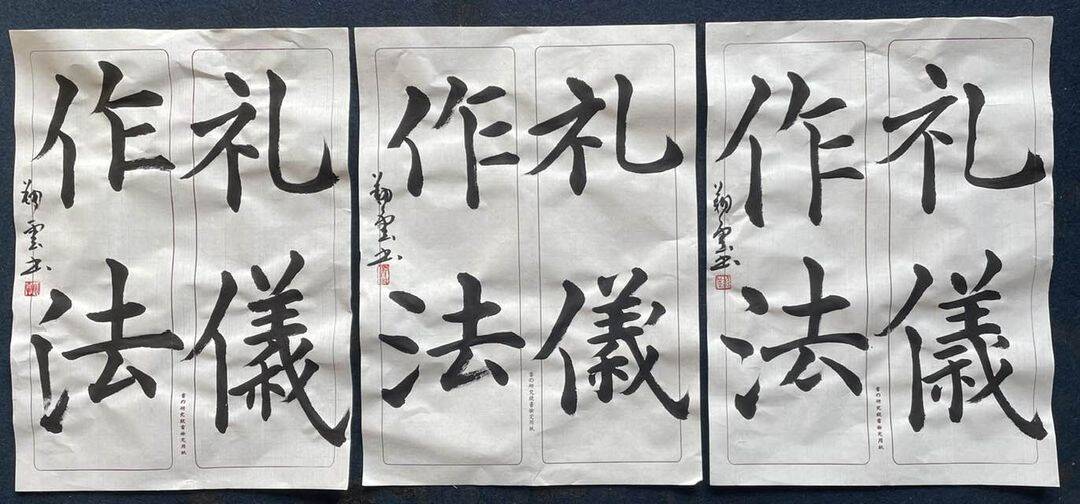 礼儀
作法
雲書
礼儀
作法
雲書
礼儀
作法
雲書